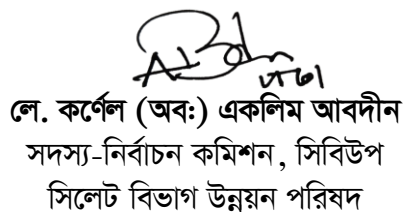 লে. কর্ণেল (অব:) একলিম আবদীন
সদস্য-নির্বাচন কমিশন, সিবিউপ
সিলেট বিভাগ উন্নয়ন পরিষদ